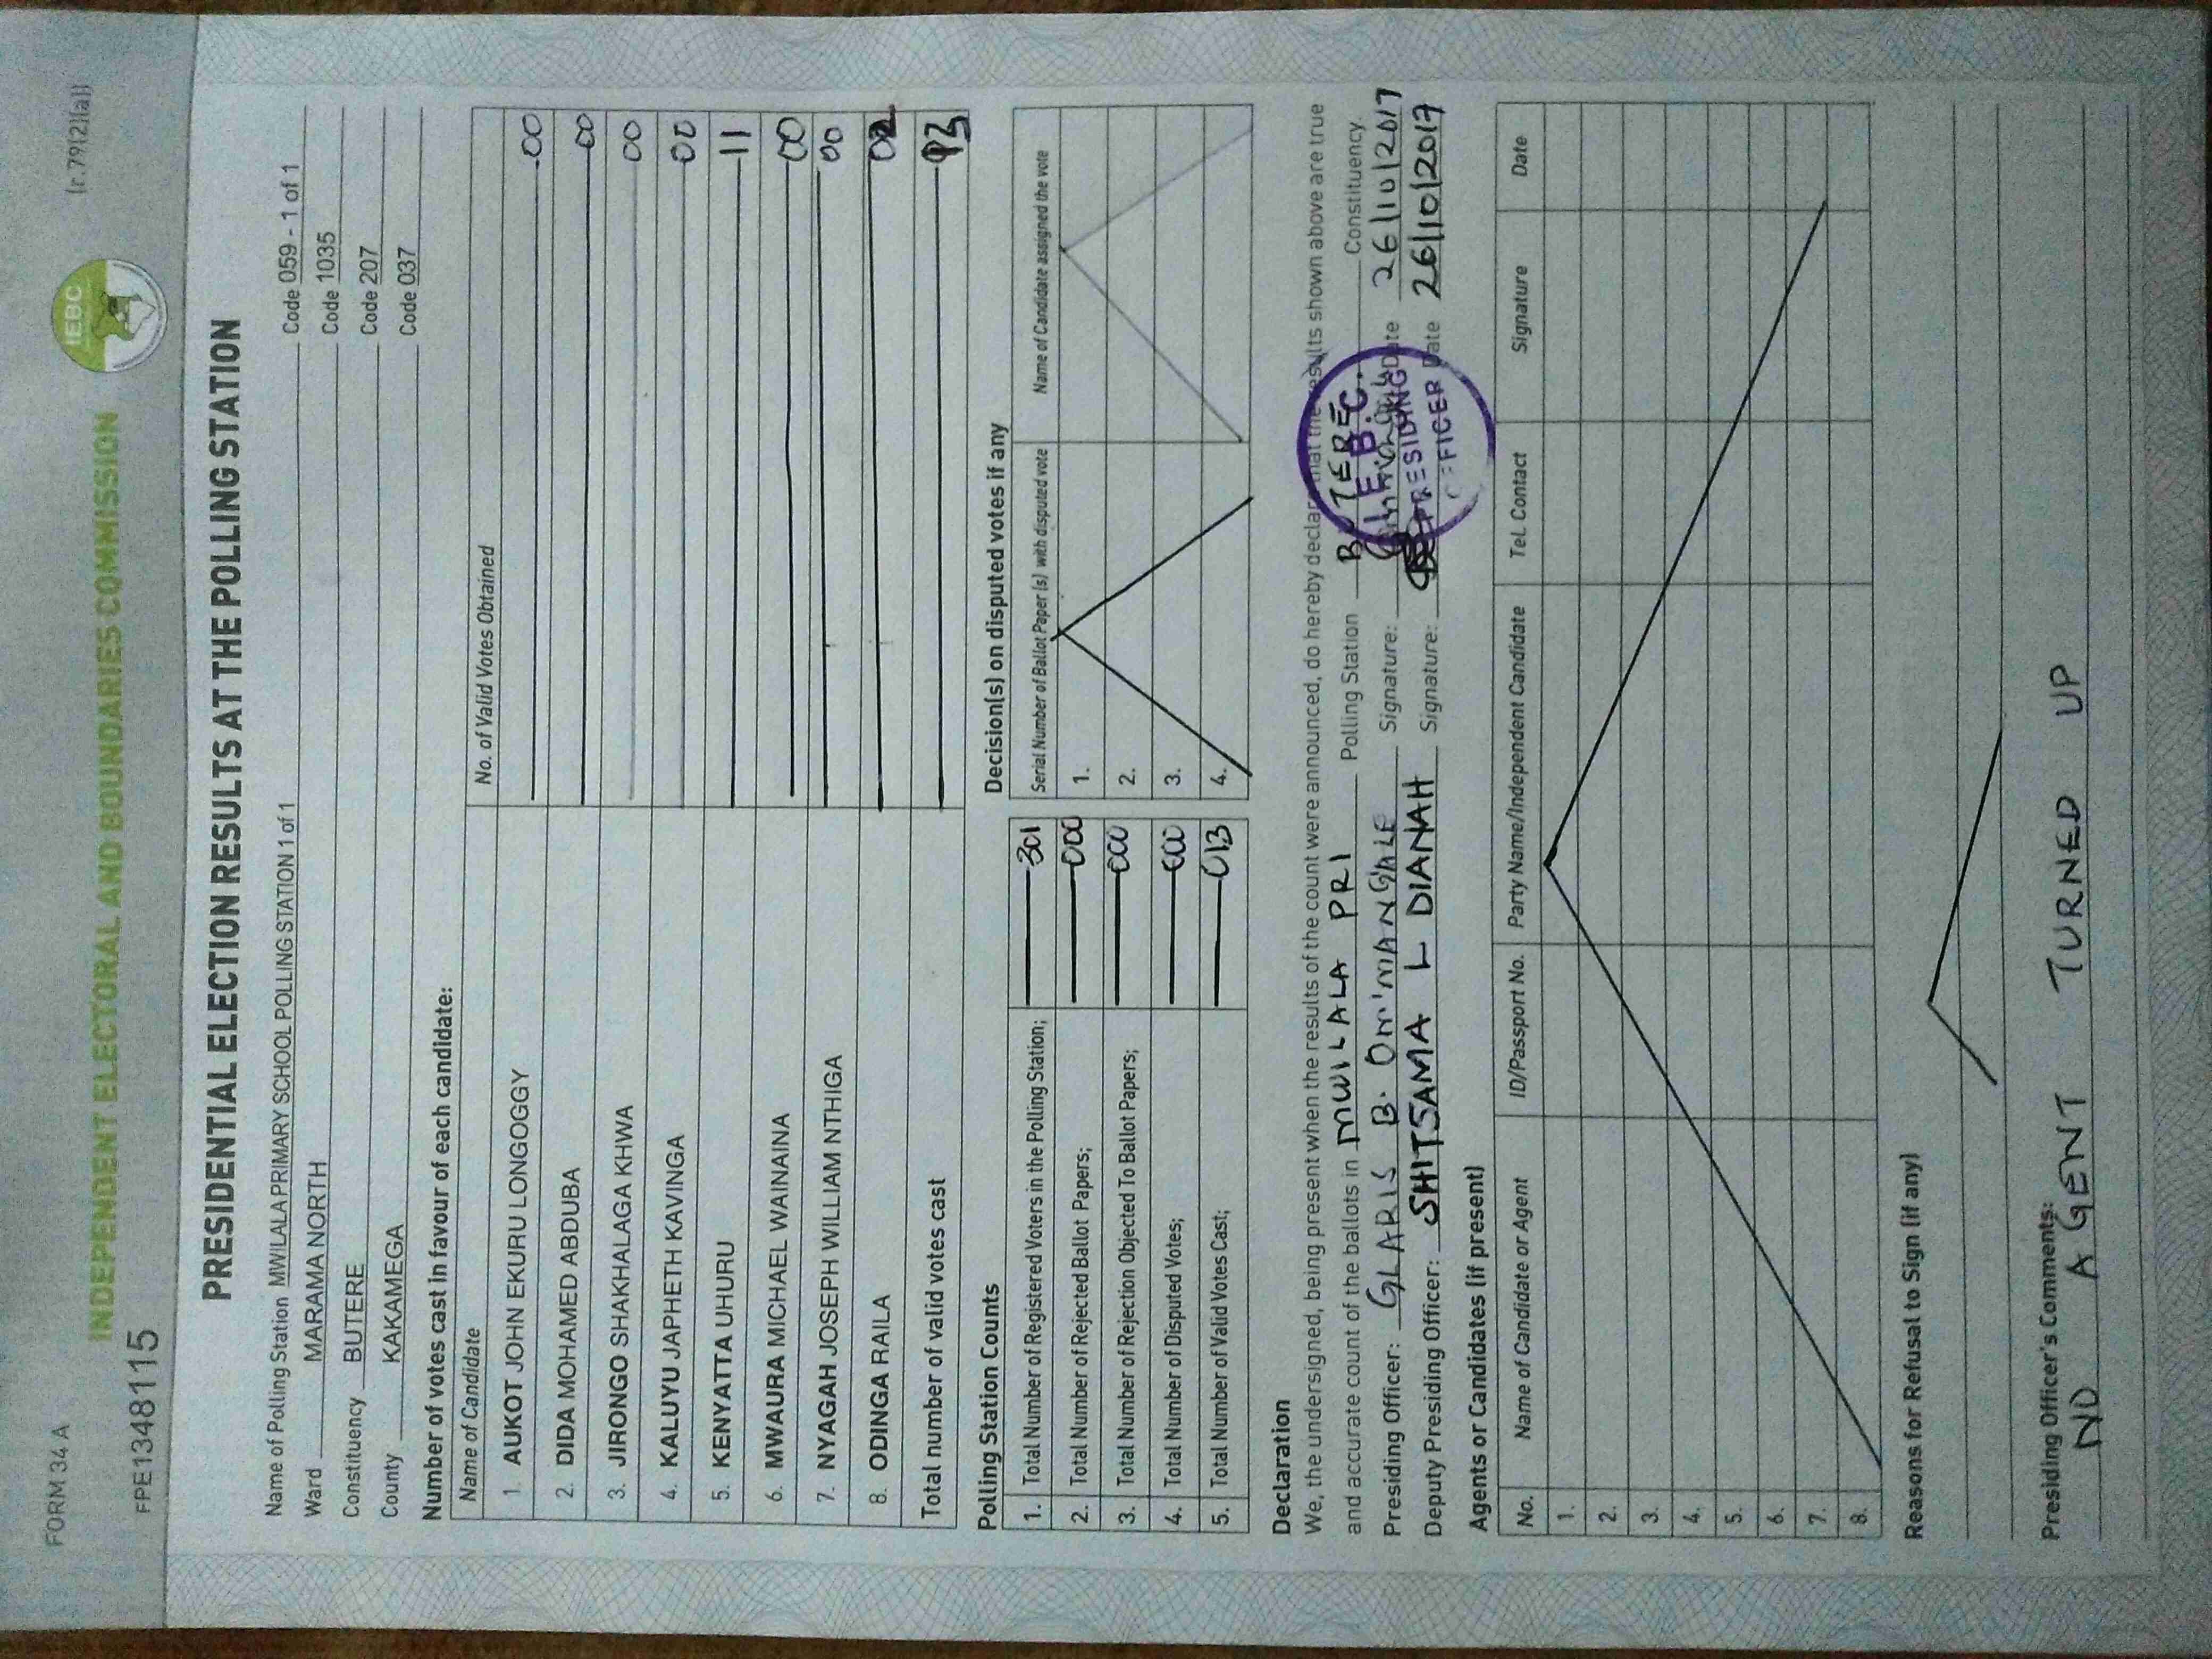 FORM 34 A (r.79(2)(a))
INDEPENDENT ELECTORAL AND BOUNDARIES COMMISSION IEBC
FPE1348115
PRESIDENTIAL ELECTION RESULTS AT THE POLLING STATION
Name of Polling Station MWILALA PRIMARY SCHOOL POLLING STATION 1 of 1 Code 059 - 1 of 1
Ward MARAMA NORTH Code 1035
Constituency BUTERE Code 207
County KAKAMEGA Code 037
Number of votes cast in favour of each candidate:
Name of Candidate No. of Valid Votes Obtained
1. AUKOT JOHN EKURU LONGOGGY 00
2. DIDA MOHAMED ABDUBA 00
3. JIRONGO SHAKHALAGA KHWA 00
4. KALUYU JAPHETH KAVINGA 00
5. KENYATTA UHURU 11
6. MWAURA MICHAEL WAINAINA 00
7. NYAGAH JOSEPH WILLIAM NTHIGA 00
8. ODINGA RAILA 02
Total number of valid votes cast 13
Polling Station Counts
1. Total Number of Registered Voters in the Polling Station; 301
2. Total Number of Rejected Ballot Papers; 000
3. Total Number of Rejection Objected To Ballot Papers; 000
4. Total Number of Disputed Votes; 000
5. Total Number of Valid Votes Cast; 013
Decision(s) on disputed votes if any
Serial Number of Ballot Paper (s) with disputed vote Name of Candidate assigned the vote
1.
2.
3.
4.
Declaration
We, the undersigned, being present when the results of the count were announced, do hereby declare that the results shown above are true
and accurate count of the ballots in MWILALA PRI Polling Station BUTERE Constituency.
Presiding Officer: GLARIS B. Signature: Date 26/10/2017
Deputy Presiding Officer: SHITSAMA L DIANAH Signature: Date 26/10/2017
I.E.B.C.
PRESIDING
OFFICER
Agents or Candidates (if present)
No. Name of Candidate or Agent ID/Passport No. Party Name/Independent Candidate Tel. Contact Signature Date
1.
2.
3.
4.
5.
6.
7.
8.
Reasons for Refusal to Sign (if any)
Presiding Officer's Comments:
NO AGENT TURNED UP